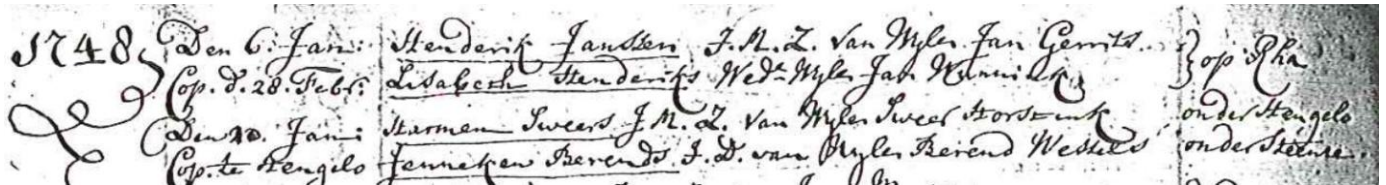 1748, Den 6. Jan: Henderik Janssen J.M.Z. van Wyle Jan Gerrits. } op Rha
Cop. d. 28. Febr: Lisabeth Henderiks Wede Wyle Jan Wunnink
Den 20. Jan: Harmen Sweers J.M.Z. van Wyle Sweer Horstink onder Hengelo
Cop. te Hengelo Jenneken Berends J.D. van Wyle Berend Wessels onder Steenre.